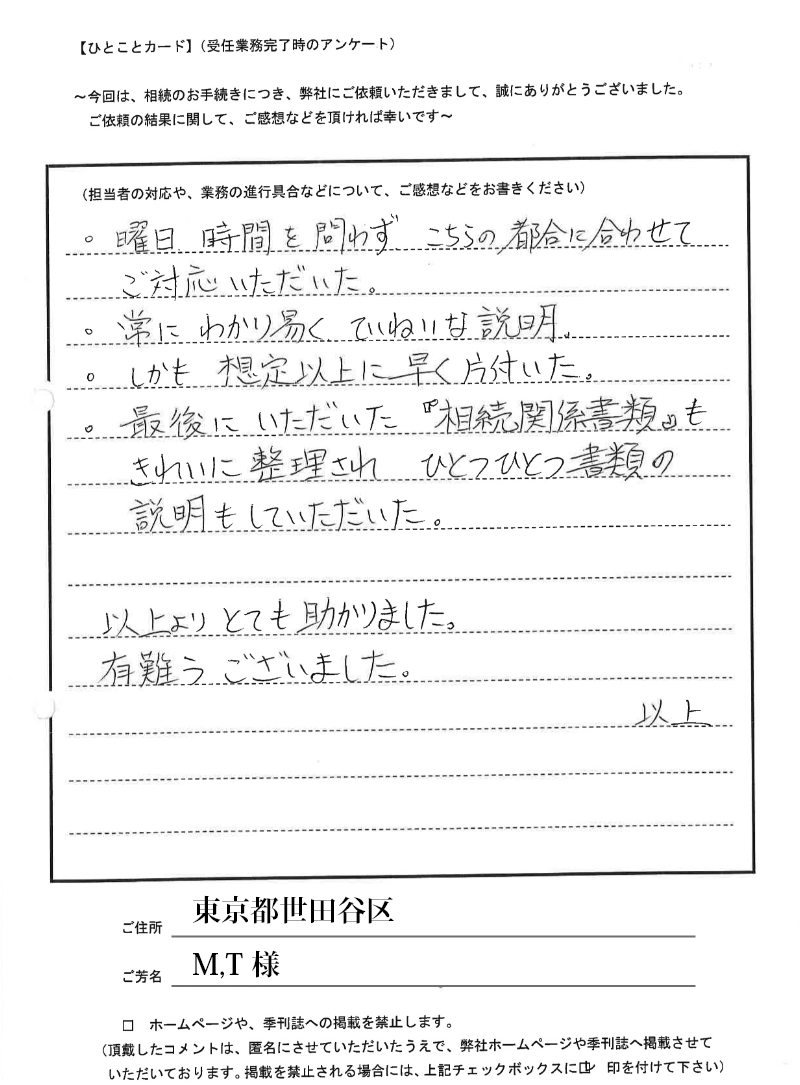 【ひとことカード】（受任業務完了時のアンケート）
～今回は、相続のお手続きにつき、弊社にご依頼いただきまして、誠にありがとうございました。
ご依頼の結果に関して、ご感想などを頂ければ幸いです～
（担当者の対応や、業務の進行具合などについて、ご感想などをお書きください）
。曜日 時間を問わず こちらの都合に合わせて
ご対応いただいた。
。常に わかり易く ていねいな説明。
。しかも 想定以上に早く片付いた。
。最後に いただいた『相続関係書類』も
きれいに整理され ひとつひとつ書類の
説明もしていただいた。
以上より とても助かりました。
有難う ございました。
以上
ご住所 東京都世田谷区
ご芳名 M,T 様
□ ホームページや、季刊誌への掲載を禁止します。
（頂戴したコメントは、匿名にさせていただいたうえで、弊社ホームページや季刊誌へ掲載させて
いただいております。掲載を禁止される場合には、上記チェックボックスに☑ 印を付けて下さい）